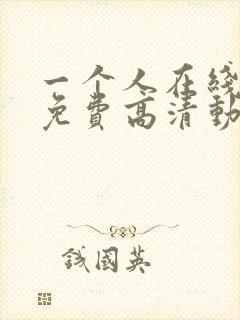 一个人在线
免费高清动
钱国英